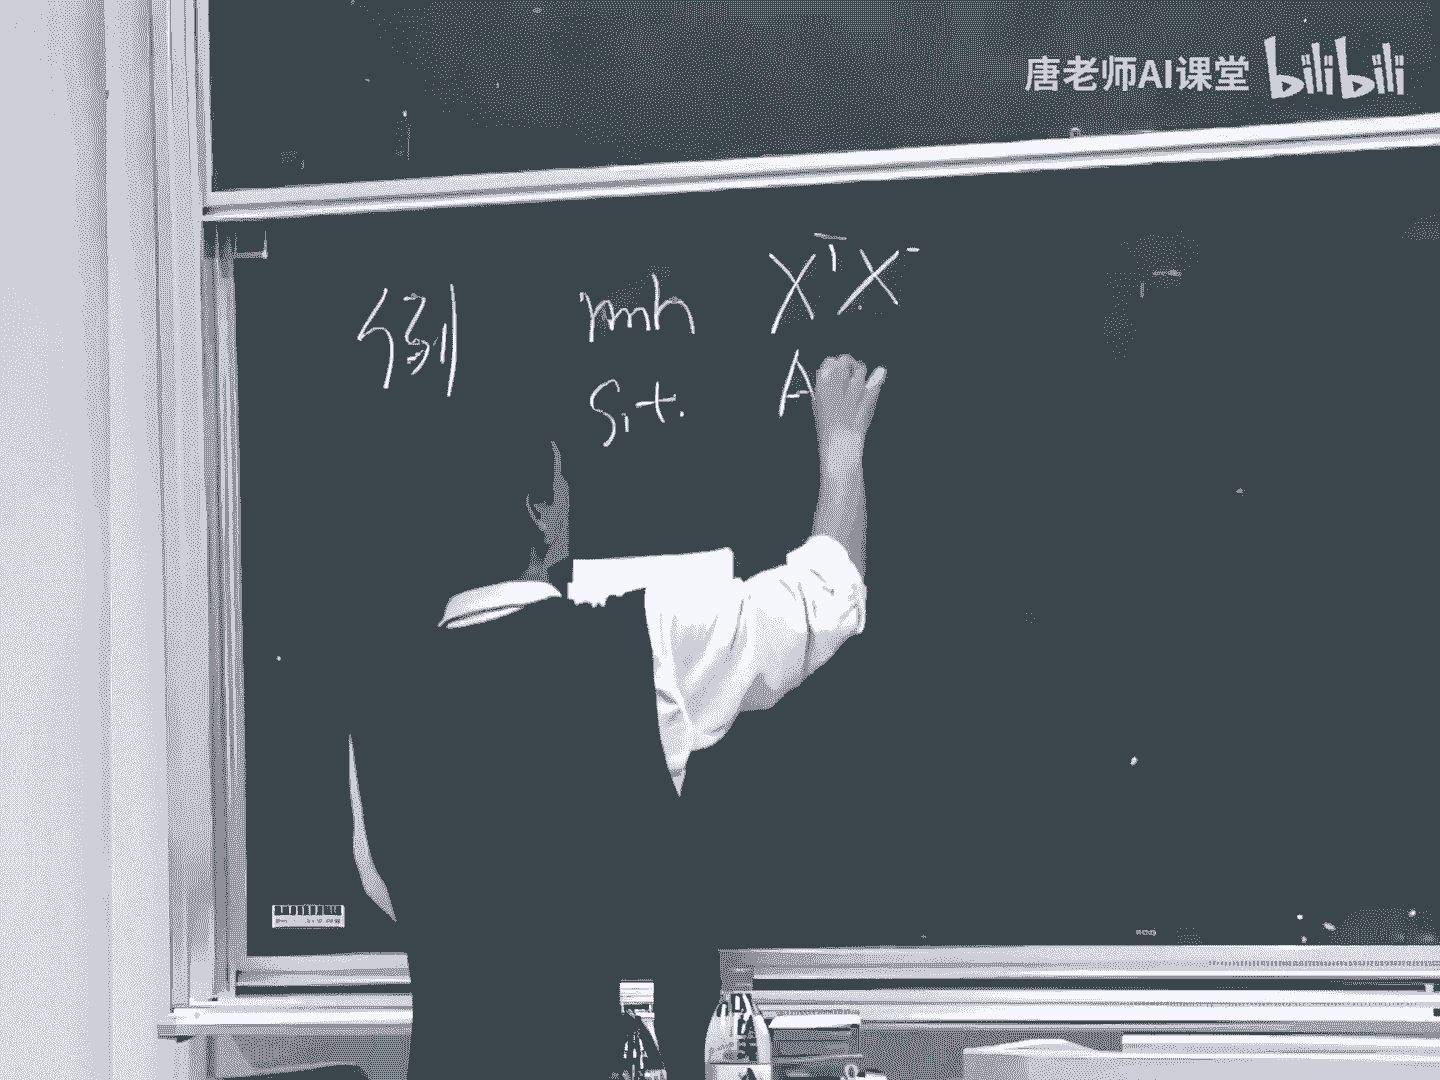 唐老师AI课堂 bilibili
例 min XᵀX
s.t. A